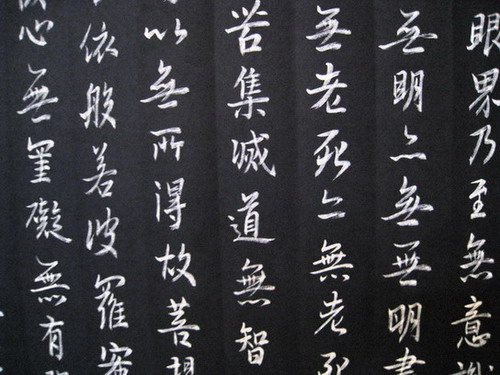 眼界乃至無意識
無明亦無無明盡
無老死亦無老死
苦集滅道無智
以無所得故菩提
依般若波羅蜜
心無罣礙無有